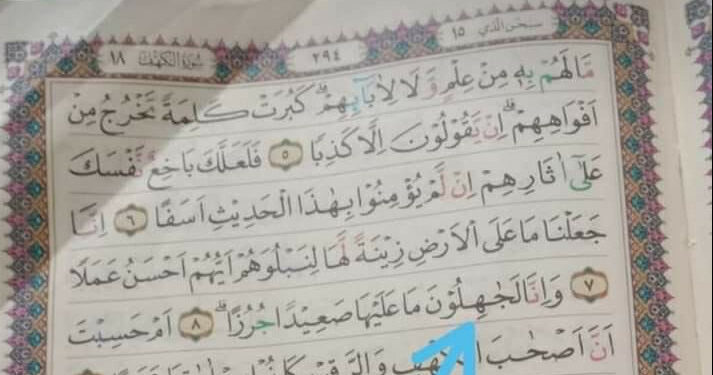 سبحٰن الذي ١٥ ٢٩٤ سُوْرَةُ الْكَهْفِ ١٨
مَّا لَهُمْ بِهٖ مِنْ عِلْمٍ وَّلَا لِاٰبَآىِٕهِمْۗ كَبُرَتْ كَلِمَةً تَخْرُجُ مِنْ
اَفْوَاهِهِمْۗ اِنْ يَّقُوْلُوْنَ اِلَّا كَذِبًا ٥ فَلَعَلَّكَ بَاخِعٌ نَّفْسَكَ
عَلٰٓى اٰثَارِهِمْ اِنْ لَّمْ يُؤْمِنُوْا بِهٰذَا الْحَدِيْثِ اَسَفًا ٦ اِنَّا
جَعَلْنَا مَا عَلَى الْاَرْضِ زِيْنَةً لَّهَا لِنَبْلُوَهُمْ اَيُّهُمْ اَحْسَنُ عَمَلًا
٧ وَاِنَّا لَجٰهِلُوْنَ مَا عَلَيْهَا صَعِيْدًا جُرُزًاۗ ٨ اَمْ حَسِبْتَ
اَنَّ اَصْحٰبَ